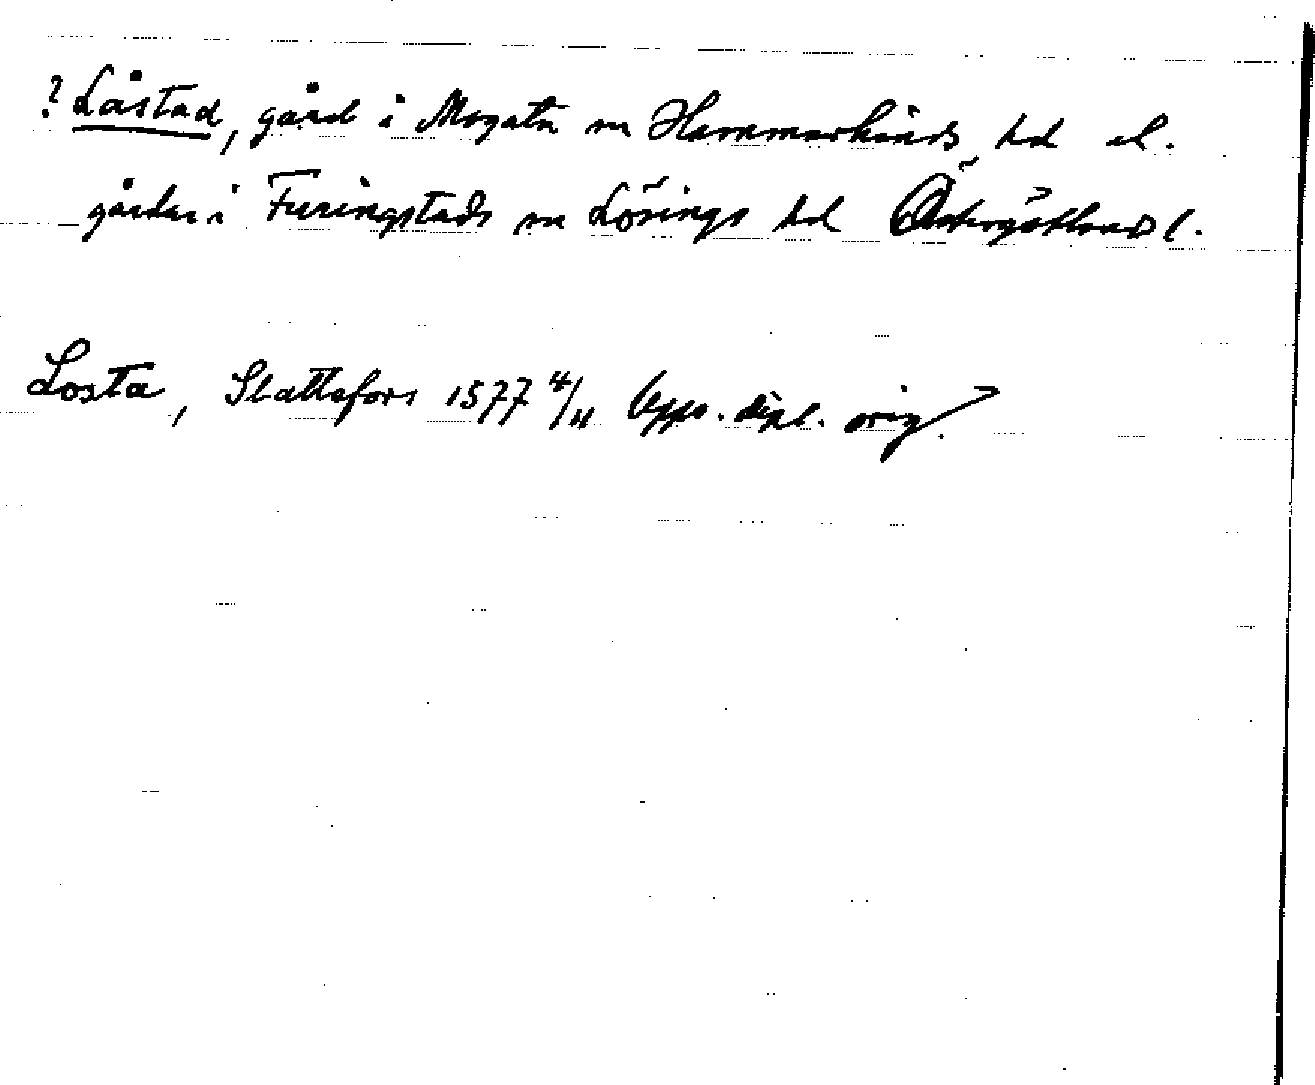 ? Låstad, gård i Mogata sn Hammarkinds hd el.
gårdar i Furingstads sn Lösings hd Östergötlands l.
Losta, Slattefors 1577 4/11 Upps. dipl. orig.